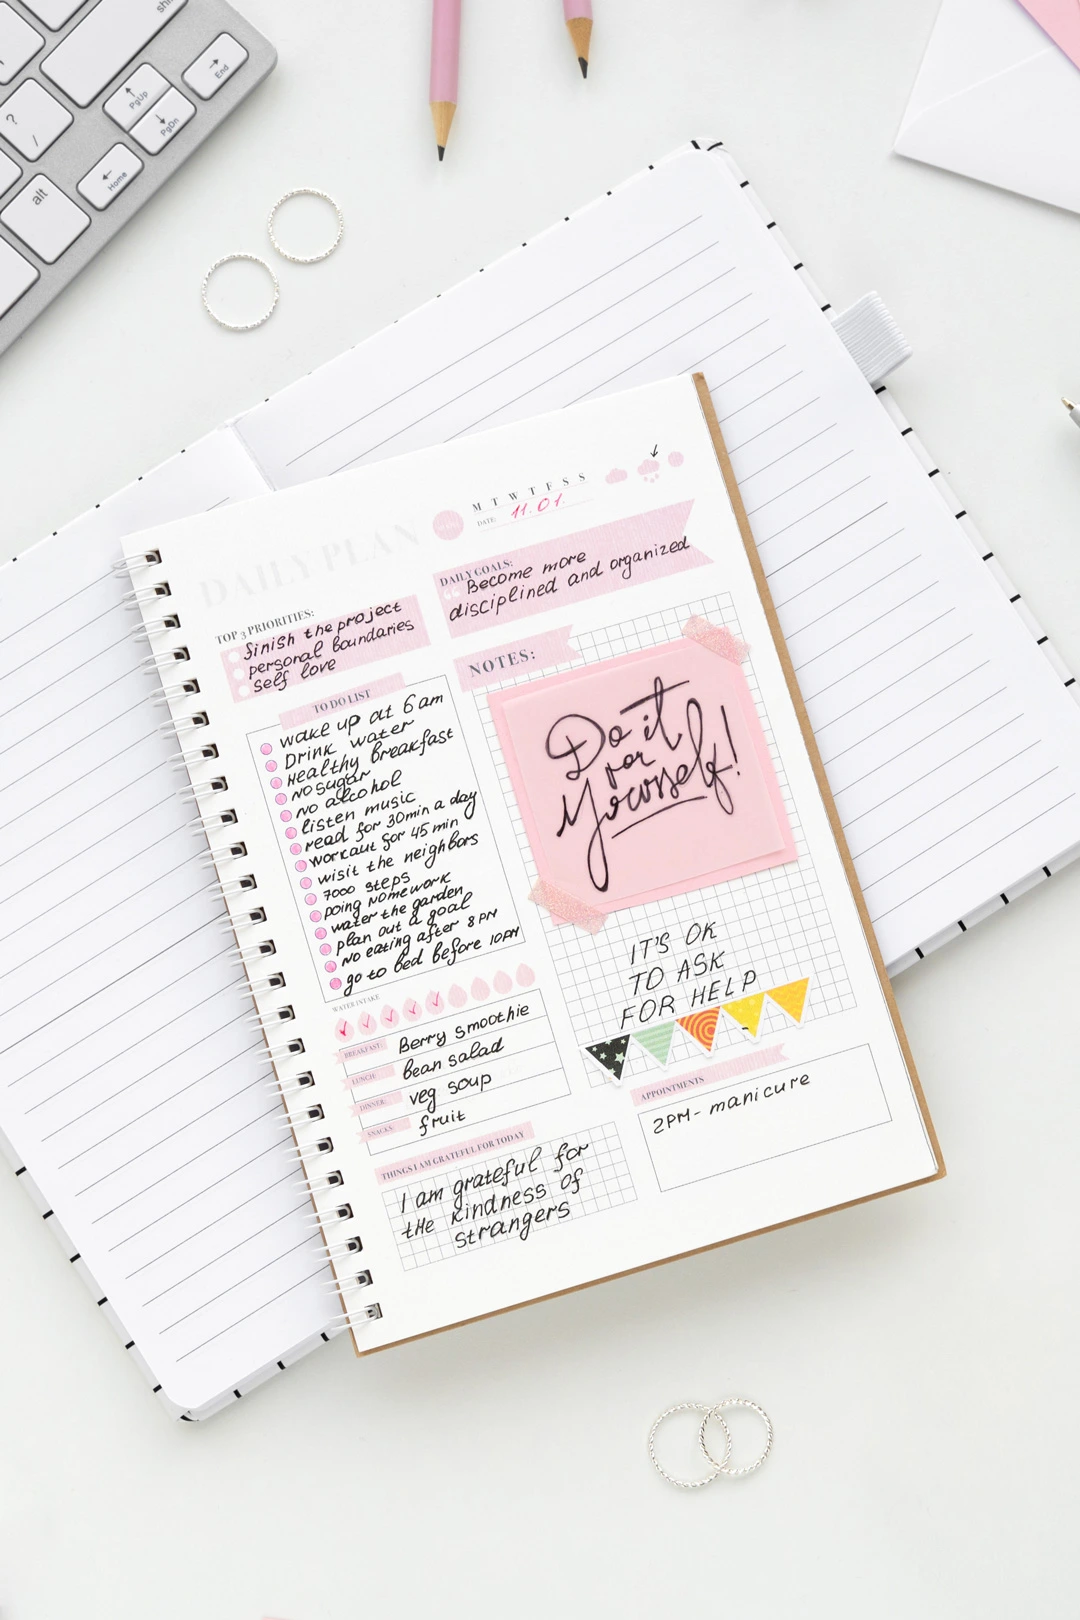 sh
End
PgUp
PgDn
Home
?
/
alt
DAILY PLAN
M T W T F S S
DATE: 11.01.
TOP 3 PRIORITIES:
finish the project
personal boundaries
self love
DAILY GOALS:
Become more
disciplined and organized
TO DO LIST
wake up at 6 am
Drink water
Healthy breakfast
no sugar
no alcohol
listen music
read for 30min a day
workout for 45 min
wisit the neighbors
7000 steps
Doing Homework
water the garden
plan out a goal
No eating after 8 PM
go to bed before 10PM
NOTES:
Do it
for
Yourself!
IT'S OK
TO ASK
FOR HELP
WATER INTAKE
BREAKFAST: Berry smoothie
LUNCH: bean salad
DINNER: veg soup
SNACKS: fruit
APPOINTMENTS
2PM- manicure
THINGS I AM GRATEFUL FOR TODAY
I am grateful for
the kindness of
strangers